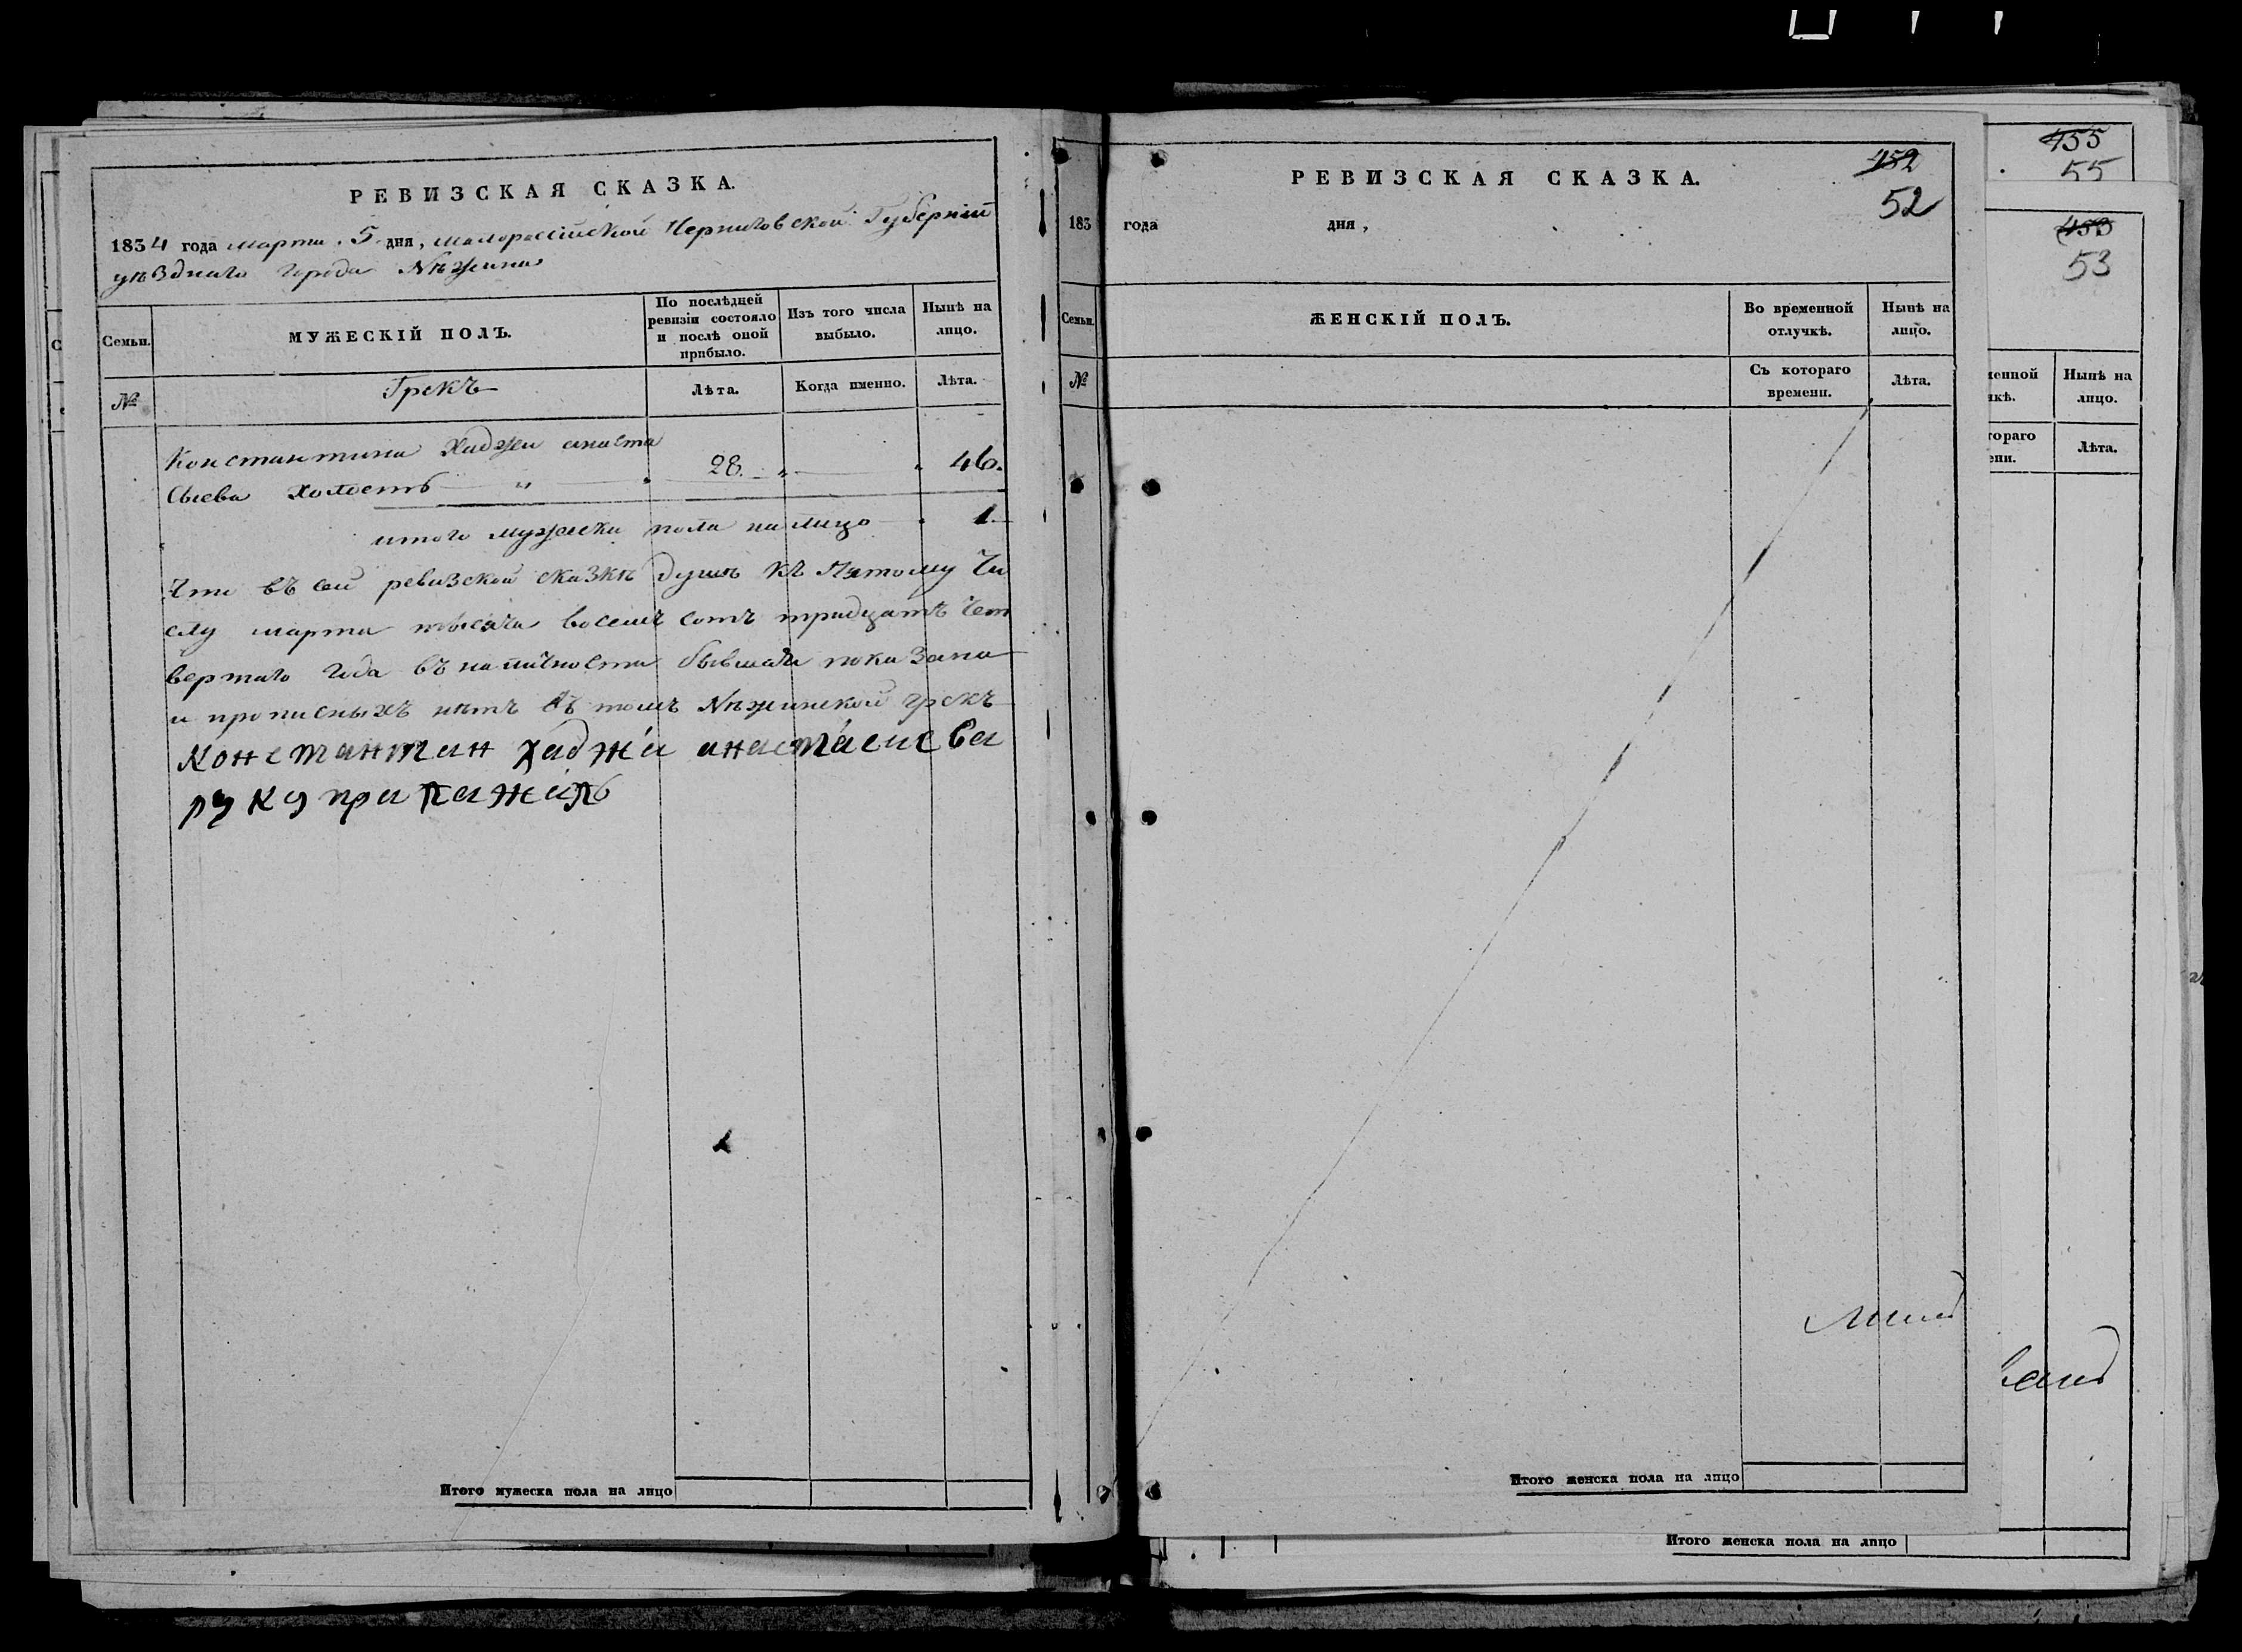 РЕВИЗСКАЯ СКАЗКА.
1834 года марта 5 дня, малороссійской Черниговской Губерніи
уѣзднаго города Нѣжина
Семьи.
МУЖЕСКІЙ ПОЛЪ.
По послѣдней ревизіи состояло и послѣ оной прибыло.
Изъ того числа выбыло.
Нынѣ на лицо.
№
Грекъ
Лѣта.
Когда именно.
Лѣта.
Константина Хаджи анаста
сыева холостъ " 28. " " 46.
итого мужеска пола на лицо 1.
Что въ сей ревизской сказкѣ душъ къ Пятому Чи
слу марта тысяча восемъ сотъ тридцатъ Чет
вертаго года въ наличности бывшая показана
и прописныхъ нѣтъ въ томъ Нѣжинской грекъ
Константин хаджи анастасиева
руку приложилъ
Итого мужеска пола на лицо
РЕВИЗСКАЯ СКАЗКА.
452
52
183 года дня,
Семьи.
ЖЕНСКІЙ ПОЛЪ.
Во временной отлучкѣ.
Нынѣ на лицо.
№
Съ котораго времени.
Лѣта.
Итого женска пола на лицо
455
55
453
53
менной
чкѣ.
Нынѣ на
лицо.
тораго
ени.
Лѣта.
Итого женска пола на лицо